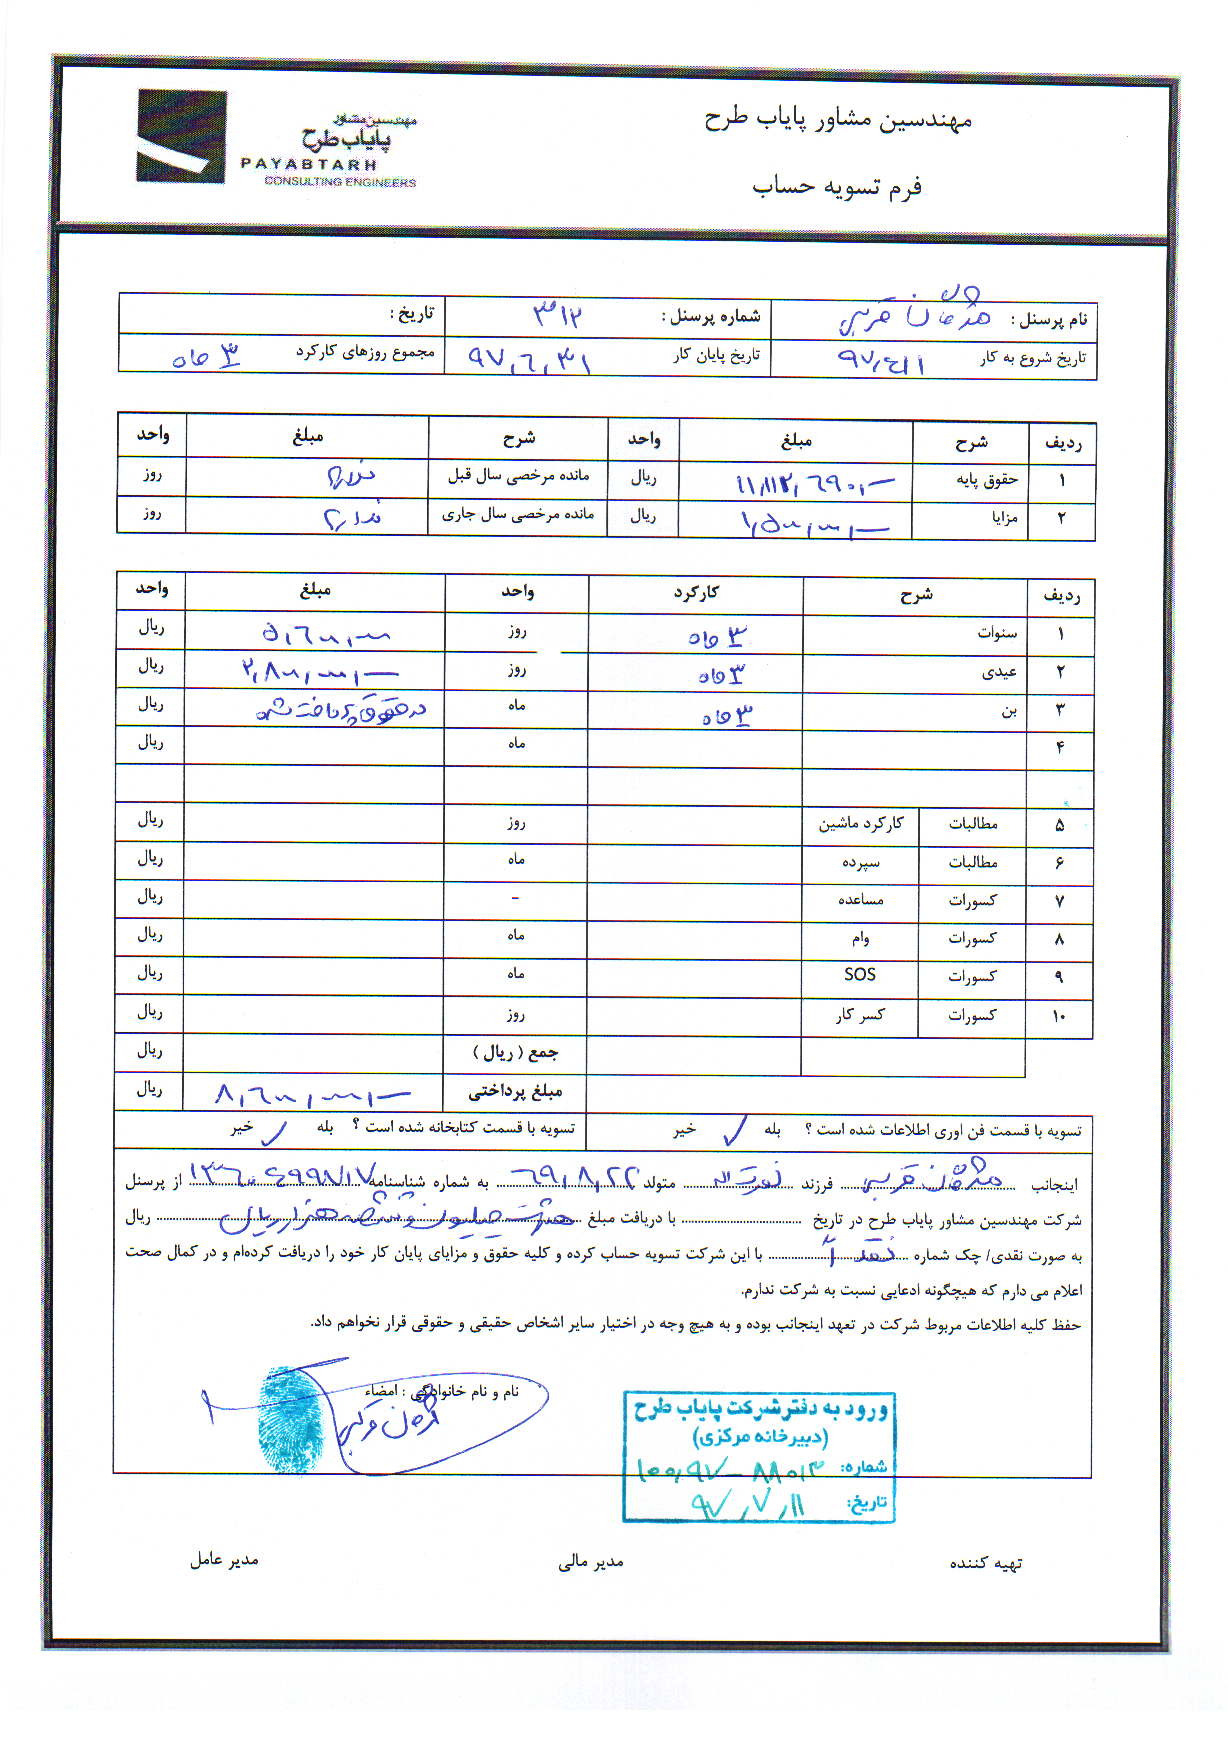 مهندسین مشاور پایاب طرح
فرم تسویه حساب
مهندسین مشاور
پایاب طرح
PAYABTARH
CONSULTING ENGINEERS
نام پرسنل : مژگان قریبی شماره پرسنل : ۳۱۲ تاریخ :
تاریخ شروع به کار ۹۷،۴،۱ تاریخ پایان کار ۹۷،۶،۳۱ مجموع روزهای کارکرد ۳ ماه
ردیف شرح مبلغ واحد شرح مبلغ واحد
۱ حقوق پایه ۱۱,۱۱۲,۶۹۰,- ریال مانده مرخصی سال قبل ندارم روز
۲ مزایا ۱,۵۰۰,۰۰۰,- ریال مانده مرخصی سال جاری ندارم روز
ردیف شرح کارکرد واحد مبلغ واحد
۱ سنوات ۳ ماه روز ۵,۶۰۰,۰۰۰ ریال
۲ عیدی ۳ ماه روز ۲,۸۰۰,۰۰۰,- ریال
۳ بن ۳ ماه ماه در حقوق پرداخت شده ریال
۴ ماه ریال
۵ مطالبات کارکرد ماشین روز ریال
۶ مطالبات سپرده ماه ریال
۷ کسورات مساعده - ریال
۸ کسورات وام ماه ریال
۹ کسورات SOS ماه ریال
۱۰ کسورات کسر کار روز ریال
جمع ( ریال ) ریال
مبلغ پرداختی ۸,۶۰۰,۰۰۰,- ریال
تسویه با قسمت فن اوری اطلاعات شده است ؟ بله ✓ خیر تسویه با قسمت کتابخانه شده است ؟ بله ✓ خیر
اینجانب مژگان قریبی فرزند نصرت اله متولد ۶۹،۸،۲۲ به شماره شناسنامه ۱۳۶۰۴۹۹۸۱۷ از پرسنل
شرکت مهندسین مشاور پایاب طرح در تاریخ با دریافت مبلغ هشت میلیون و ششصد هزار ریال ریال
به صورت نقدی/ چک شماره نقداً با این شرکت تسویه حساب کرده و کلیه حقوق و مزایای پایان کار خود را دریافت کرده‌ام و در کمال صحت
اعلام می دارم که هیچگونه ادعایی نسبت به شرکت ندارم.
حفظ کلیه اطلاعات مربوط شرکت در تعهد اینجانب بوده و به هیچ وجه در اختیار سایر اشخاص حقیقی و حقوقی قرار نخواهم داد.
نام و نام خانوادگی : امضاء
مژگان قریبی
ورود به دفتر شرکت پایاب طرح
(دبیرخانه مرکزی)
شماره: ۱۰۰،۹۷-۸۸۰۱۳
تاریخ: ۹۷،۷،۱۱
تهیه کننده مدیر مالی مدیر عامل